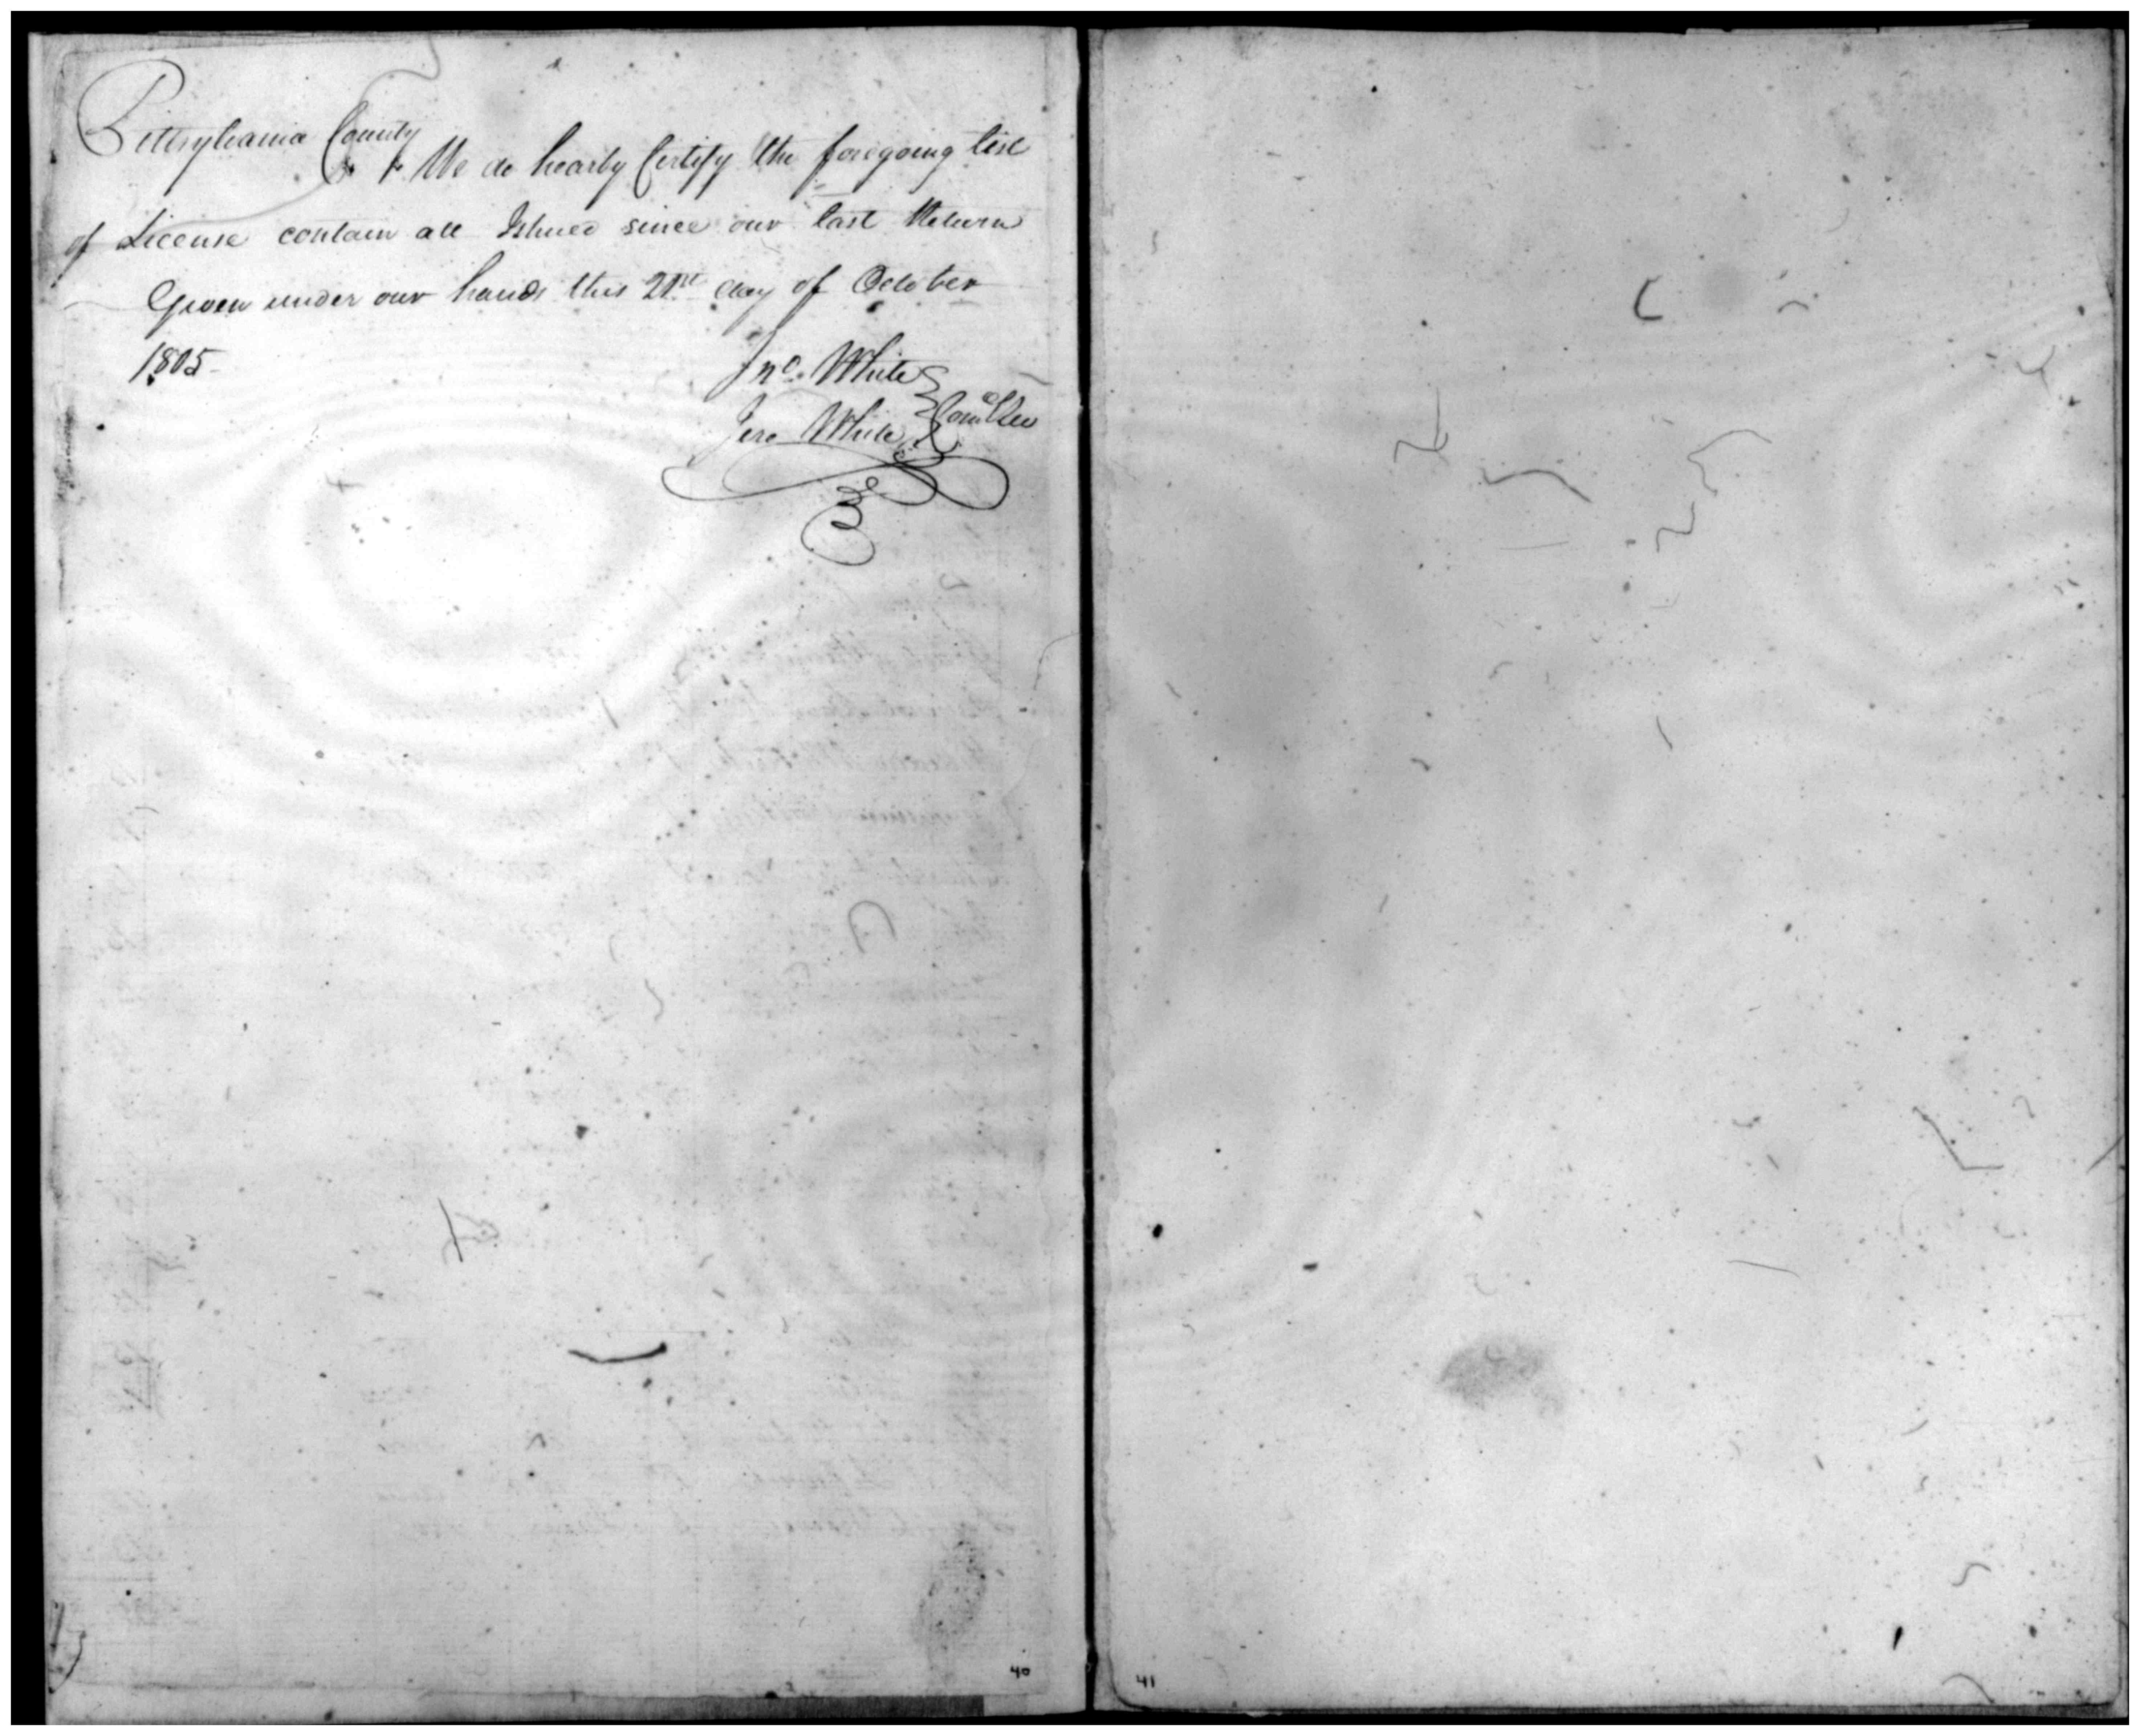 Pittsylvania County
We do hearby Certify the foregoing list
of License contain all Ishued since our last Return
Given under our hands this 21st day of October
1805
Jno. White
Jere White
40
41